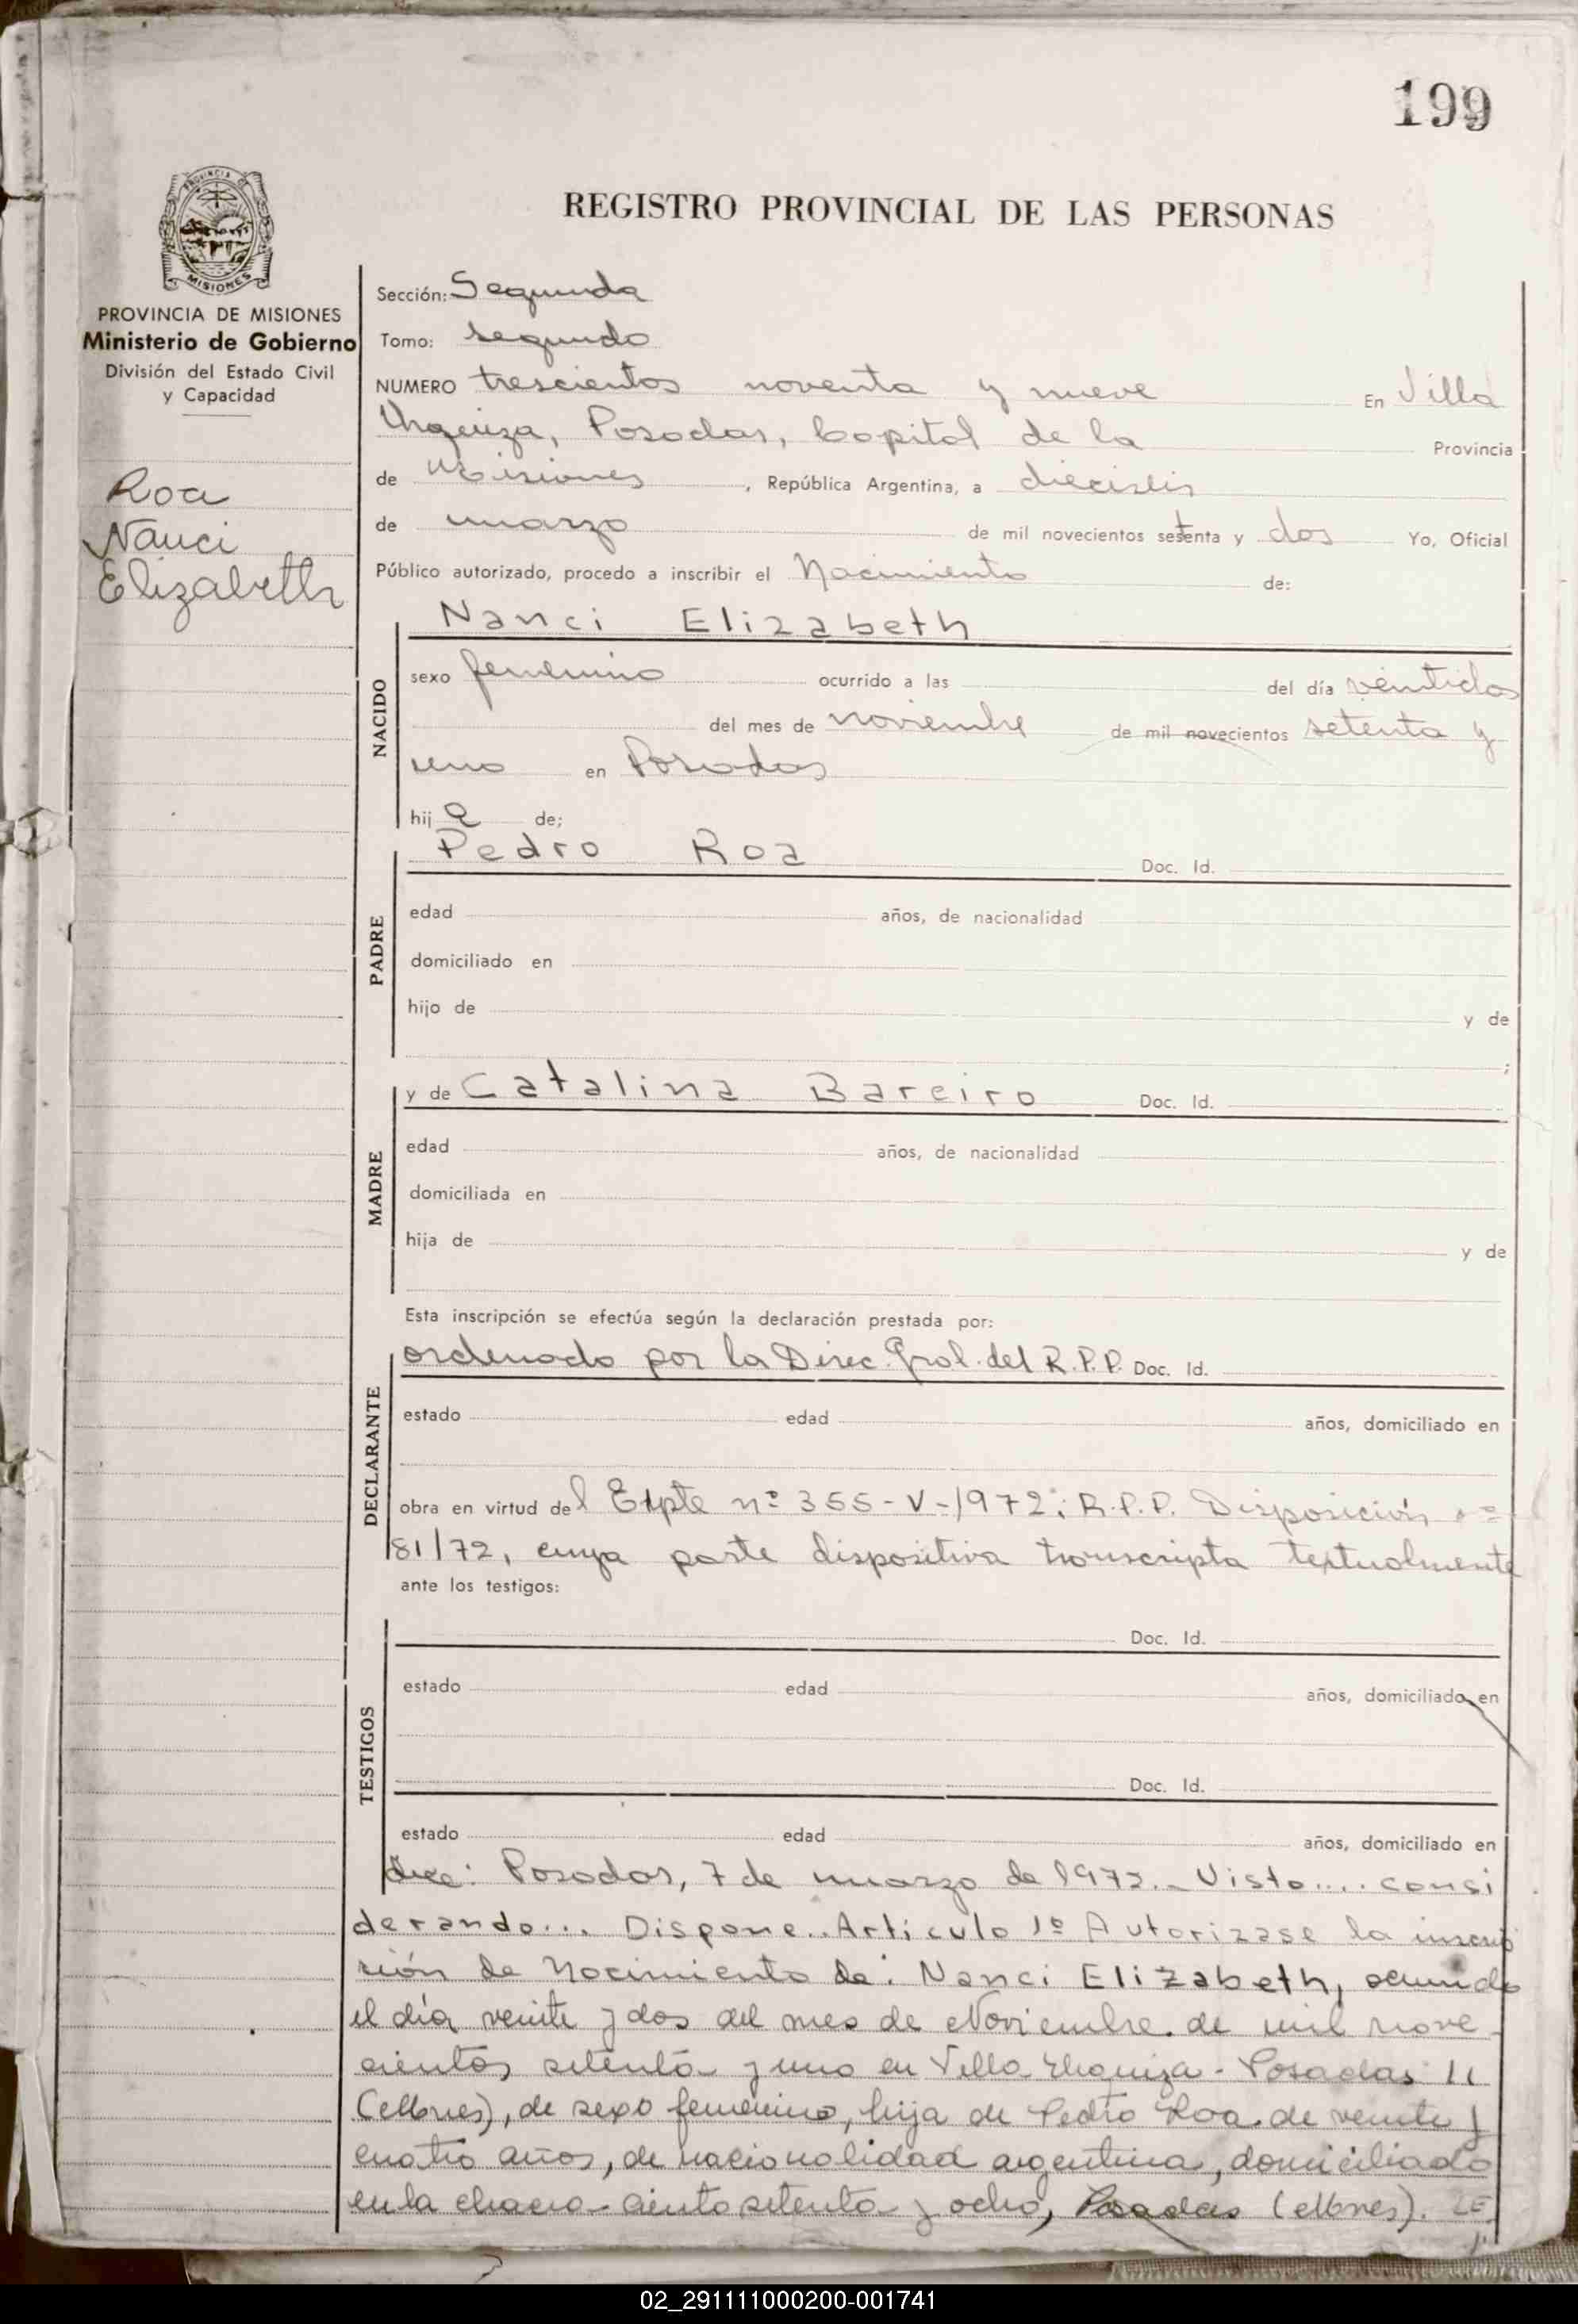 199
PROVINCIA DE
MISIONES
REGISTRO PROVINCIAL DE LAS PERSONAS
PROVINCIA DE MISIONES
Ministerio de Gobierno
División del Estado Civil
y Capacidad
Roa
Nanci
Elizabeth
Sección: Segunda
Tomo: segundo
NUMERO trescientos noventa y nueve En Villa
Urquiza, Posadas, Capital de la Provincia
de Misiones, República Argentina, a dieciseis
de marzo de mil novecientos setenta y dos Yo, Oficial
Público autorizado, procedo a inscribir el Nacimiento de:
NACIDO
Nanci Elizabeth
sexo femenino ocurrido a las del día veintidos
del mes de noviembre de mil novecientos setenta y
uno en Posadas
hija de;
PADRE
Pedro Roa Doc. Id.
edad años, de nacionalidad
domiciliado en
hijo de y de
;
MADRE
y de Catalina Bareiro Doc. Id.
edad años, de nacionalidad
domiciliada en
hija de y de
Esta inscripción se efectúa según la declaración prestada por:
DECLARANTE
ordenado por la Direc. Gral. del R.P.P. Doc. Id.
estado edad años, domiciliado en
obra en virtud del Expte nº 355-V-1972; R.P.P. Disposición nº
81/72, cuya parte dispositiva transcripta textualmente
ante los testigos:
TESTIGOS
Doc. Id.
estado edad años, domiciliado en
Doc. Id.
estado edad años, domiciliado en
dice: Posadas, 7 de marzo de 1972.- Visto.... consi
derando... Dispone.. Articulo 1º Autorizase la inscrip
ción de Nacimiento de: Nanci Elizabeth, ocurrido
el día veinte y dos del mes de Noviembre de mil nove-
cientos setenta y uno en Villa Urquiza - Posadas
(Mnes), de sexo femenino, hija de Pedro Roa de veinte y
cuatro años, de nacionalidad argentina, domiciliado
en la chacra ciento setenta y ocho, Posadas (Mnes). LE
02_291111000200-001741